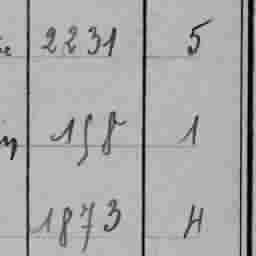 2231 5
158 1
1873 4